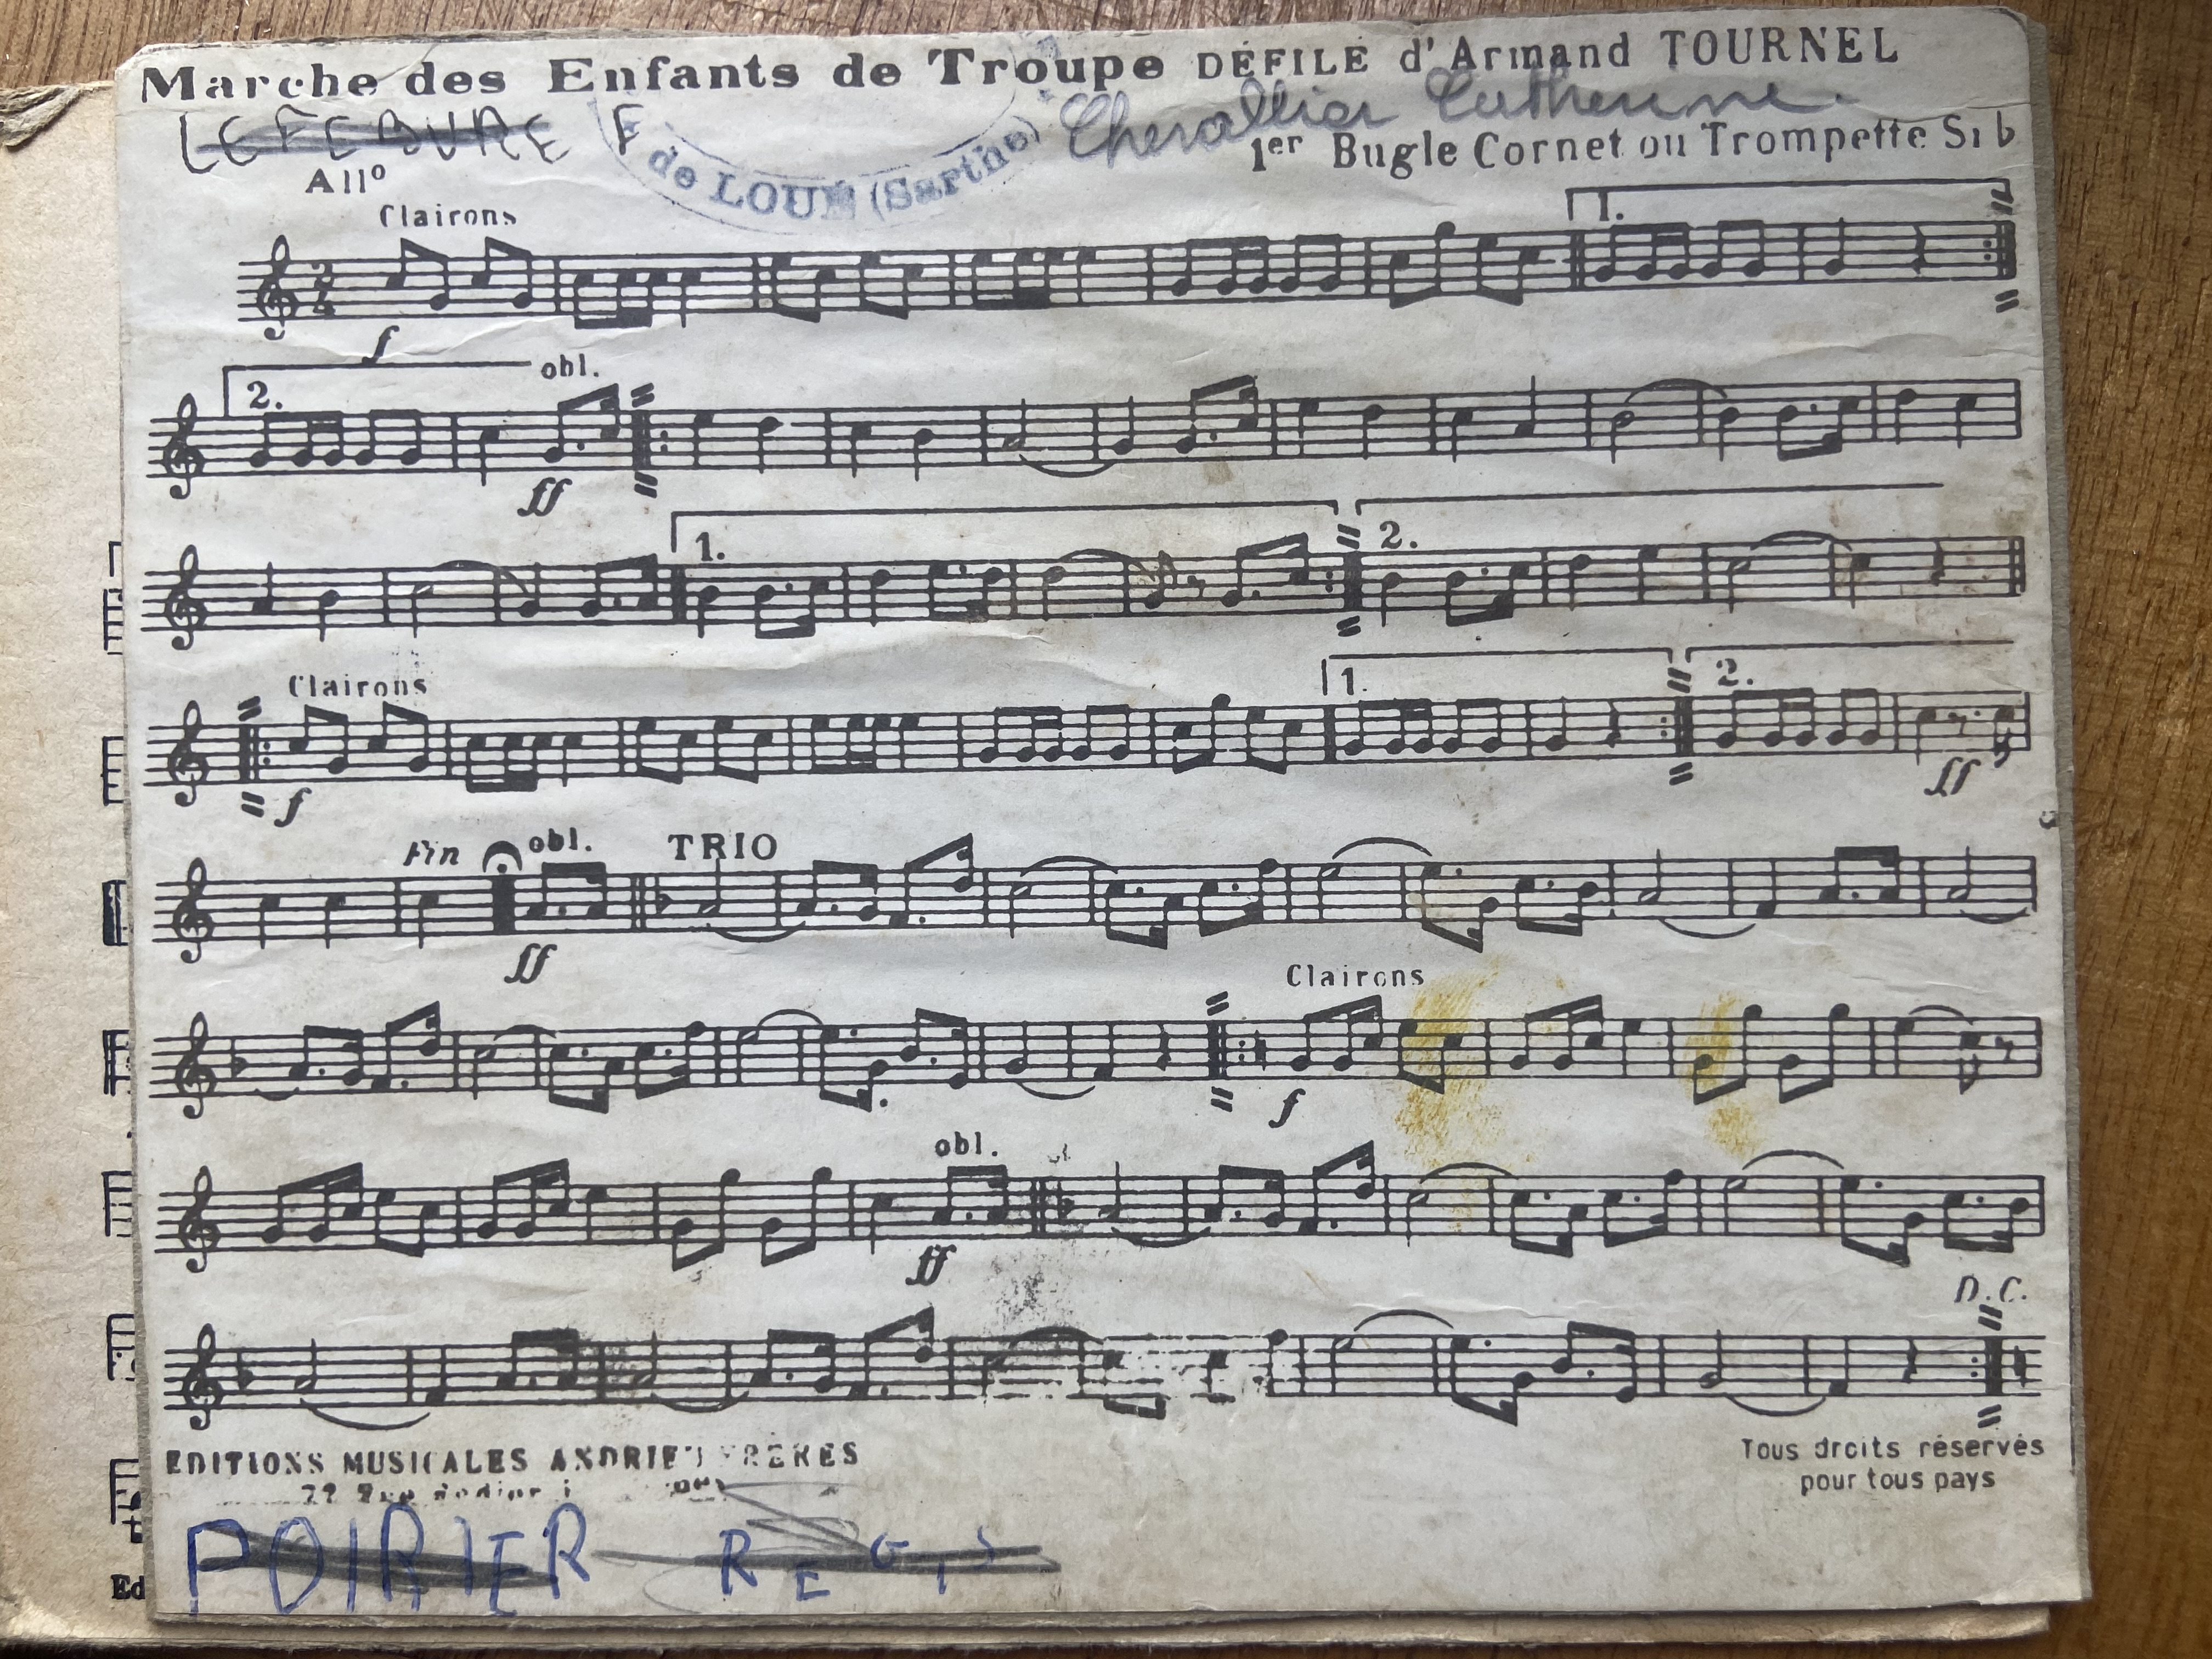 Marche des Enfants de Troupe DÉFILÉ d'Armand TOURNEL
LEFEBURE F
Chevallier Catherine.
de LOUÉ (Sarthe)
1er Bugle Cornet ou Trompette Si b
All°
Clairons
1.
2
4
f
2.
obl.
ff
1.
2.
Clairons
1.
2.
f
ff
Fin
obl.
TRIO
ff
Clairons
f
obl.
ff
D.C.
EDITIONS MUSICALES ANDRIEU FRÈRES
Tous droits réservés
pour tous pays
POIRIER REGIS
Ed